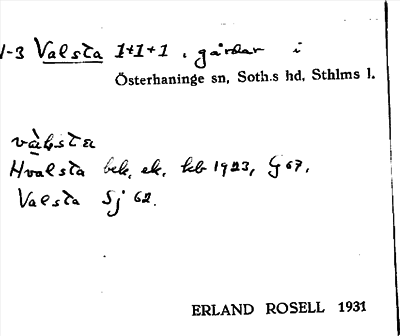 1-3 Valsta 1+1+1, gårdar i
Österhaninge sn, Soth.s hd, Sthlms l.
Hvalsta bek, ek, kb 1923, G 67,
Valsta Sj 62.
ERLAND ROSELL 1931